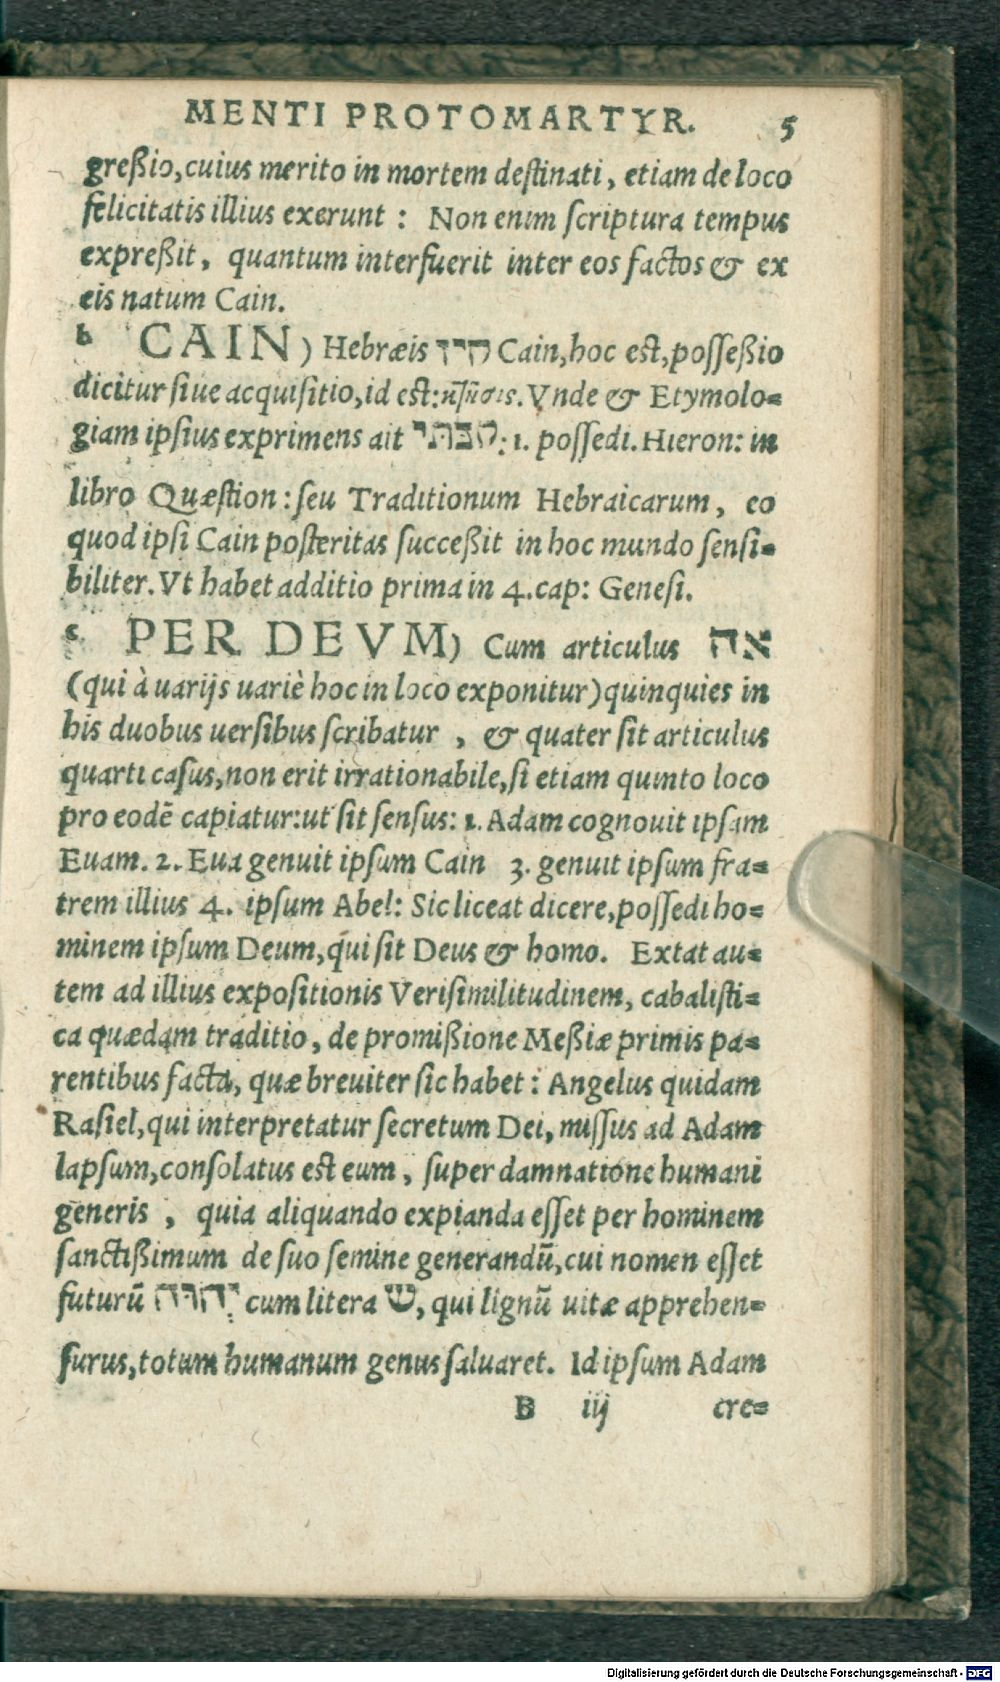 MENTI PROTOMARTYR. 5
greßio, cuius merito in mortem destinati, etiam de loco
felicitatis illius exerunt : Non enim scriptura tempus
expreßit, quantum interfuerit inter eos factos & ex
eis natum Cain.
b CAIN) Hebræis קין Cain, hoc est, posseßio
dicitur siue acquisitio, id est: κτῆσις. Vnde & Etymolo=
giam ipsius exprimens ait : 1. possedi. Hieron: in
libro Quæstion: seu Traditionum Hebraicarum, eo
quod ipsi Cain posteritas succeßit in hoc mundo sensi=
biliter. Vt habet additio prima in 4. cap: Genesi.
c PER DEVM) Cum articulus אה
(qui à uarijs uariè hoc in loco exponitur) quinquies in
his duobus uersibus scribatur , & quater sit articulus
quarti casus, non erit irrationabile, si etiam quinto loco
pro eodē capiatur: ut sit sensus: 1. Adam cognouit ipsam
Euam. 2. Eua genuit ipsum Cain 3. genuit ipsum fra=
trem illius 4. ipsum Abel: Sic liceat dicere, possedi ho=
minem ipsum Deum, qui sit Deus & homo. Extat au=
tem ad illius expositionis Verisimilitudinem, cabalisti=
ca quædam traditio, de promißione Meßiæ primis pa=
rentibus facta, quæ breuiter sic habet : Angelus quidam
Rasiel, qui interpretatur secretum Dei, missus ad Adam
lapsum, consolatus est eum , super damnatione humani
generis , quia aliquando expianda esset per hominem
sanctißimum de suo semine generandū, cui nomen esset
futurū יהוה cum litera ש, qui lignū uitæ apprehen=
surus, totum humanum genus saluaret. Id ipsum Adam
B iij cre=
Digitalisierung gefördert durch die Deutsche Forschungsgemeinschaft - DFG